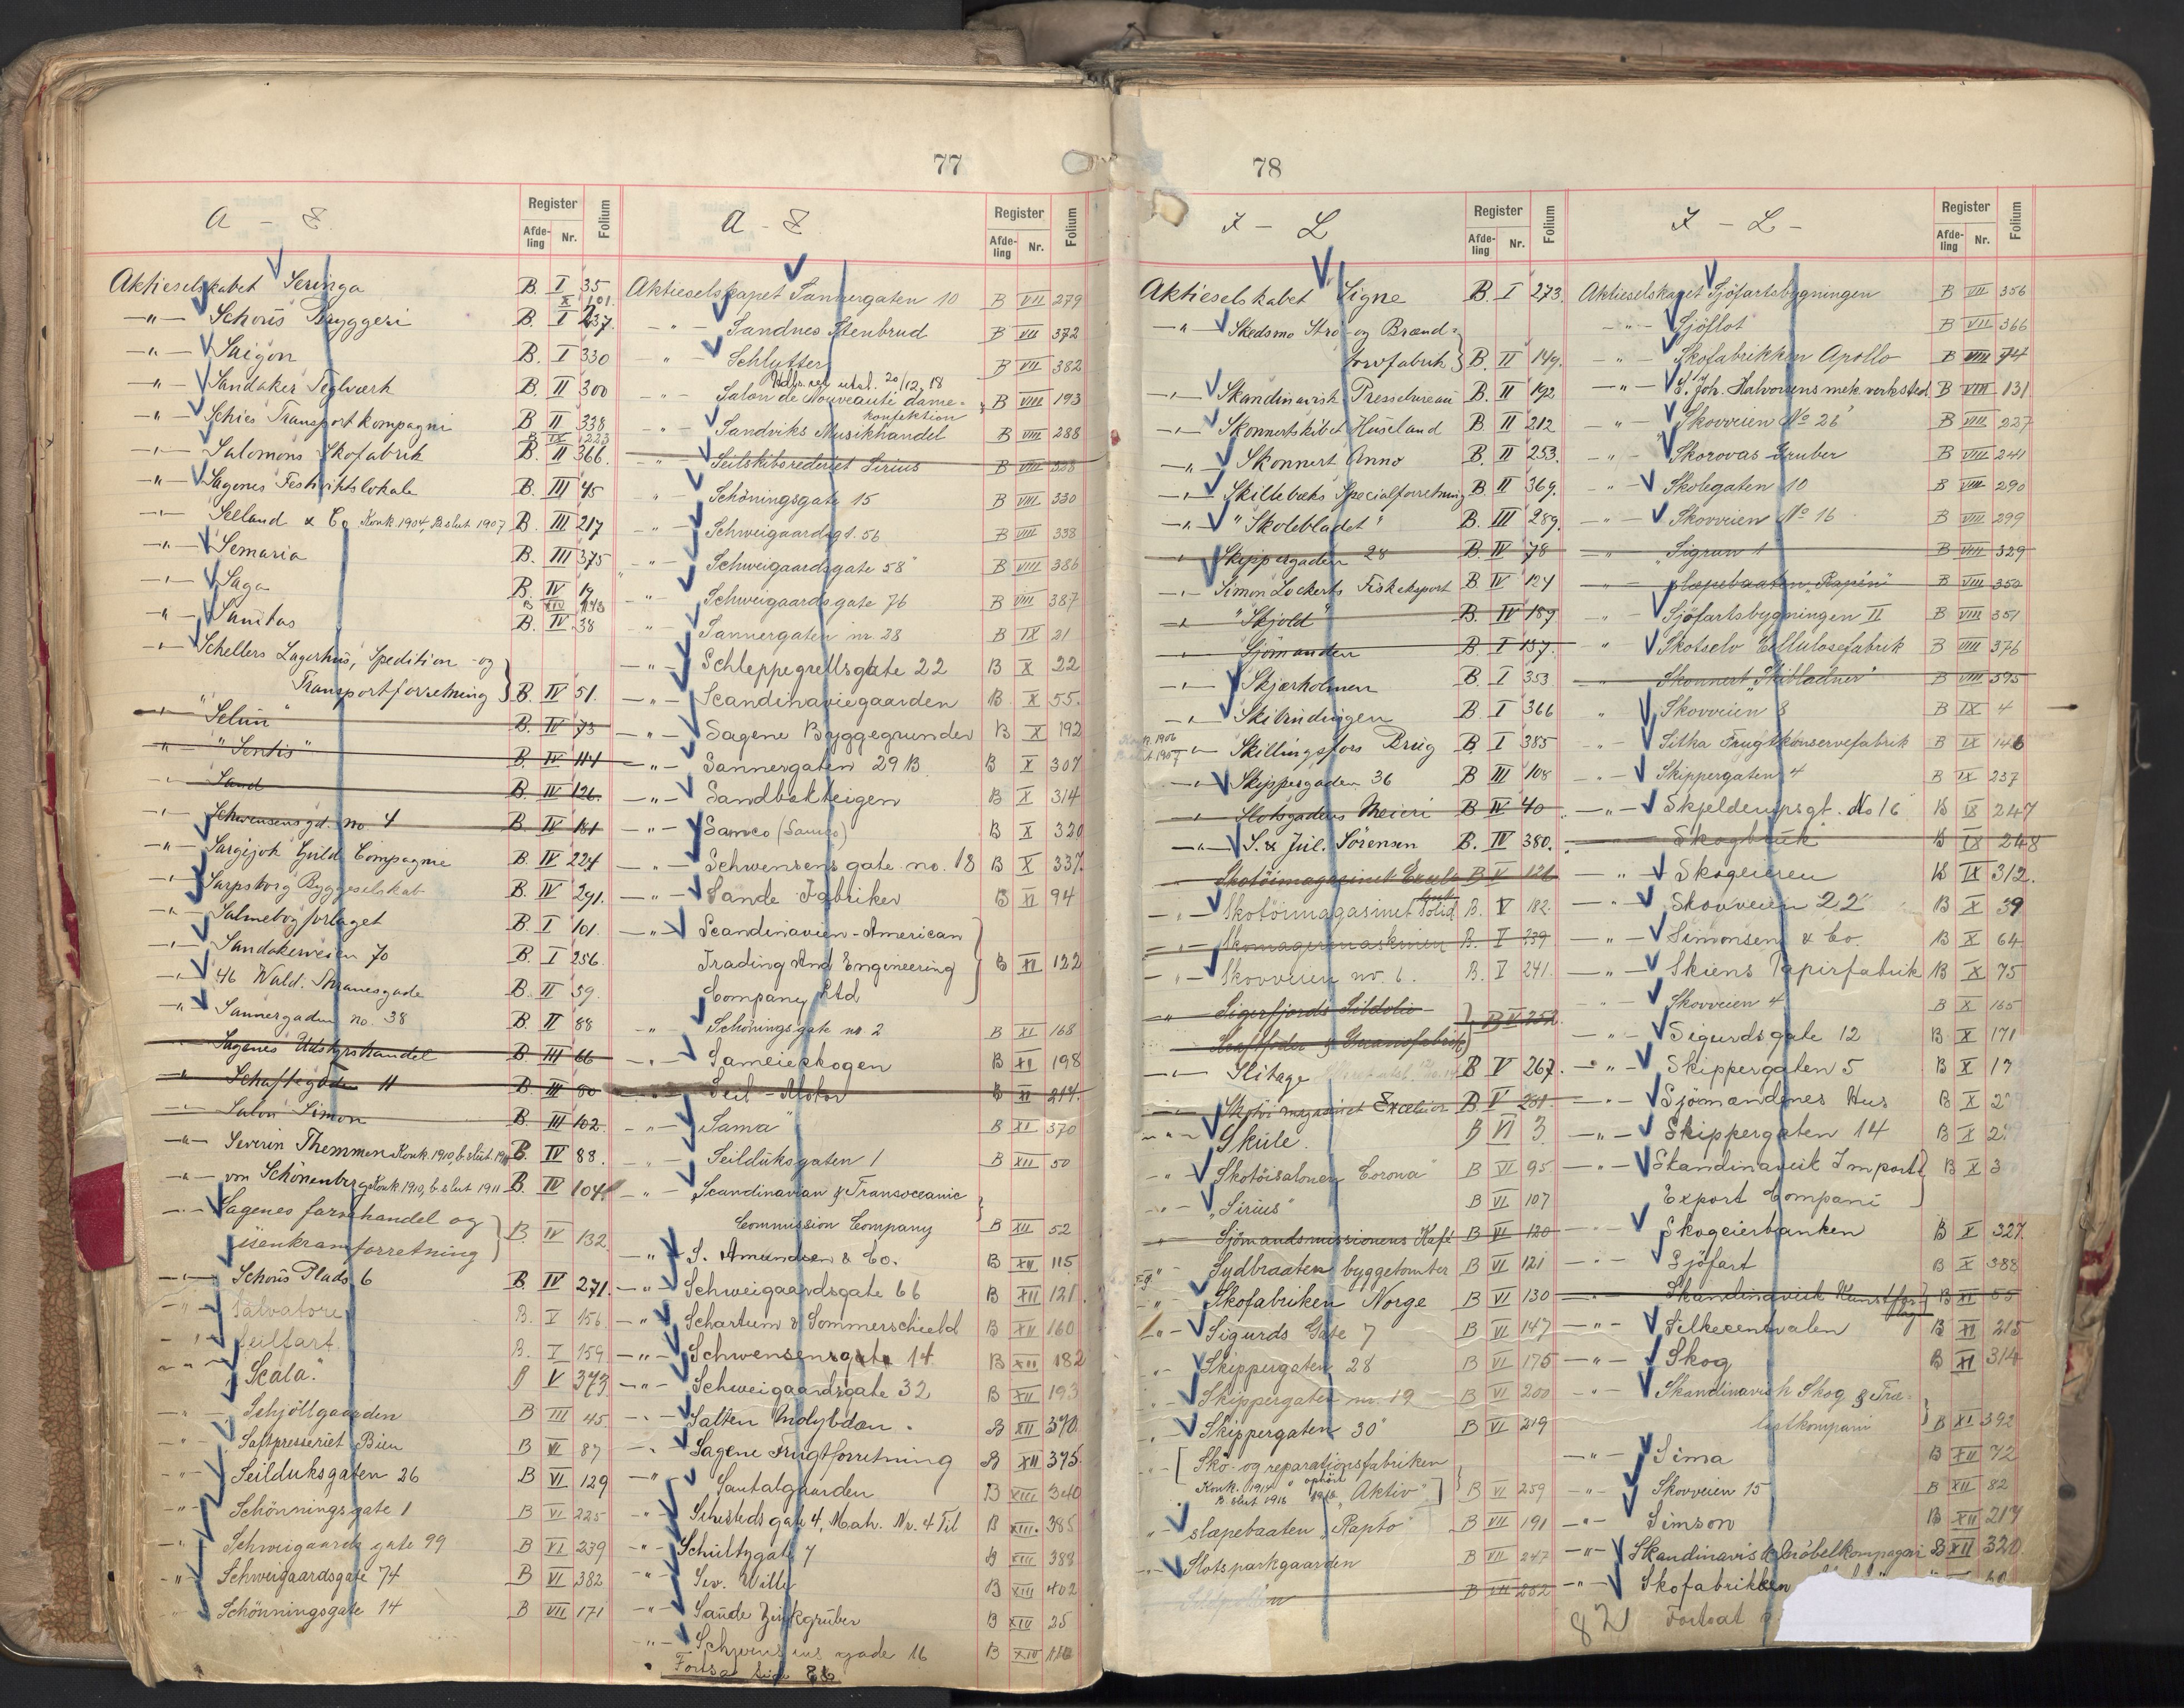 77
A - E
Register
Folium
Afde-
ling
Nr.
Aktieselskabet Seringa B. I 35
X 101.
—"— Schous Bryggeri B. I 237.
—"— Saigon B. I 330
—"— Sandaker Teglværk B. II 300
—"— Schies Transportkompagni B II 338
B IX 223
—"— Salomons Skofabrik B. II 366.
—"— Sagenes Festivitetslokale B. III 45
Selland & Co Konk. 1904, B. slut 1907 B. III 217
—"— Semaria B. III 375
—"— Saga B. IV 19
B XIV 143
—"— Sanitas B. IV 38
—"— Schellers Lagerhus, Spedition - og
Transportforretning B. IV 51.
—"— "Selun" B. IV 73
—"— "Sentis" B. IV 114
—"— Sand B. IV 126.
—"— Schwensensgd. no 4 B. IV 181
—"— Sargijok Guld Compagnie B. IV 224
—"— Sarpsborg Byggeselskab B. IV 291.
—"— Salmebogforlaget B. I 101.
—"— Sandakerveien 70 B. I 256
—"— 46 Wald. Thranesgade B. II 59.
—"— Sannergaden no. 38 B. II 88
Sagenes Udstyrshandel B. III 66
—"— Schaftegaden 11 B. III 80
—"— Salon Simon B. III 102.
—"— Severin Themmen Konk. 1910, b. slut. B. IV 88.
—"— von Schönenberg Konk. 1910, b. slut 1911 B. IV 104
—"— Sagenes farvehandel og
isenkramforretning B IV 132
—"— Schous Plads 6 B. IV 271.
—"— Salvatore B. V 156.
—"— Seilfart. B. V 159
—"— "Scala". B V 373
—"— Schjöttgaarden B III 45
—"— Saftpresseriet Bien B VI 87
—"— Seilduksgaten 26 B VI 129
—"— Schönningsgate 1 B VI 225
—"— Schweigaards gate 99 B VI 239
—"— Schweigaardsgate 74 B VI 382
Schönningsgate 14 B VII 171
A - E
Register
Folium
Afde-
ling
Nr.
Aktieselskapet Sannergaten 10 B VII 279
—"— Sandnes Stenbrud B VII 372
—"— Schlytter B VII 382
utsl. 20/12.18
—"— Salon de Nouveauté dame-
konfektion B VIII 193
—"— Sandviks Musikhandel B VIII 288
—"— Seilskibsrederiet Sirius B VIII 338
—"— Schöningsgate 15 B VIII 330
—"— Schweigaardsgt. 56 B VIII 338
—"— Schweigaardsgate 58" B VIII 386
—"— Schweigaardsgate 76 B VIII 387
—"— Sannergaten nr. 28 B IX 21
—"— Schleppegrellsgate 22 B X 22
—"— Scandinaviegaarden B. X 55.
—"— Sagene Byggegrunder B X 192
—"— Sannergaten 29 B B X 307
—"— Sandbakteigen B X 314
—"— Samco (Samco) B X 320
—"— Schwensens gate no. 18 B X 337.
—"— Sande Fabriker B XI 94
—"— Scandinavien - American
Trading And Engineering
Company Ltd B XI 122
—"— Schöningsgate nr 2 B XI 168
—"— Sameieskogen B XI 198
Seil - Motor B XI 214.
—"— Sama" B XI 370
—"— Seilduksgaten 1 B XII 50
—"— Scandinavian & Transoceanic
Commission Company B XII 52
—"— S. Amundsen & Co. B XII 115
—"— Schweigaardsgate 66 B XII 121
—"— Schartum & Sommerschield B XII 160
—"— Schwensensgate 14 B XII 182
—"— Schweigaardsgate 32 B XII 193
—"— Salten Molybdæn. B XII 370.
—"— Sagene Frugtforretning B XII 375.
—"— Santalgaarden B XIII 340
—"— Sehesteds gate 4, Mah. Nr. 4 Til B XIII. 385
—"— Schultzgate 7 B XIII 388
—"— Sev. Wille B XIII 402
—"— Sande Zinkgruber B XIV 25
—"— Schwensens gade 16 B XIV 110
Forts. side 86
78
I - L
Register
Folium
Afde-
ling
Nr.
Aktieselskabet Signe B. I 273.
—"— Skedsmo Strø - og Brænd-
torvfabrik B. II 149.
—"— Skandinavisk Pressebureau B. II 192
—"— Skonnertskibet Huseland B II 212
—"— Skonnert Anno B. II 253.
—"— Skillebæks Specialforretning B. II 369.
—"— "Skolebladet" B. III 289.
Skippergaden 28 B. IV 78
—"— Simon Lockerts Fiskeksport B. IV 124
—"— "Skjold" B. IV 189
—"— Sjömanden B. I 137.
—"— Skjærholmen B. I 353
—"— Skitrindingen B. I 366
Konk. 1906
—"— Skillingsfors Brug B. I 385
—"— Skippergaden 36 B III 108
Slotsgadens Meieri B IV 40
—"— S. & Jul. Sörensen B. IV 380.
Skotöimagasinet B V 126
—"— Skotöimagasinet Solid B. V 182.
—"— Skomagermaskinen B. V 239
—"— Skovveien no. 6. B. V 241.
—"— Sigerfjords Sildolie -
Kraftfoder & Guanofabrik B V 252.
—"— Slitage B V 267.
—"— Skotöi magasinet Excelsior B V 281
—"— Skule. B VI 3.
—"— Skotöisalonen Corona" B VI 95.
—"— "Sirius" B VI 107
Sjömandsmissionens Kafé B VI 120
—"— Sydbraaten byggetomter B VI 121
—"— Skofabriken Norge B VI 130
—"— Sigurds Gate 7 B VI 147
—"— Skippergaten 28 B VI 175
—"— Skippergaten nr. 19 B VI 200
—"— Skippergaten 30" B VI 219
—"— [ Sko - og reparationsfabriken
Konk. 1914 ophört
B. slut 1918 1918 "Aktiv" ] B VI 259
—"— slæpebaaten "Rapto" B VII 191
—"— Slotsparkgaarden B VII 247
B VII 252
I - L -
Register
Folium
Afde-
ling
Nr.
Aktieselskapet Sjöfartsbygningen B VII 356
—"— Sjöflot B VII 366
—"— Skofabrikken Apollo B VIII 74
—"— S. Joh. Halvorsens mek. verksted. B VIII 131
—"— Skovveien No 26" B VIII 227
—"— Skorovas Gruber B VIII 241
—"— Skolegaten 10 B VIII 290
—"— Skovveien No 16 B VIII 299
—"— Sigrun 1 B VIII 329
—"— slæpebaaten "Rapén" B VIII 350
—"— Sjöfartsbygningen II B VIII 351
—"— Skotselv Cellulosefabrik B VIII 376
Skonnert "Skibladner" B VIII 395
—"— Skovveien 8 B IX 4
—"— Sitka Frugtkonservefabrik B IX 146
—"— Skippergaten 4 B IX 237
—"— Skjeldrupsgt. No 16 B IX 247
Skogbruk B IX 248
—"— Skogeieren B IX 312.
—"— Skovveien 22 B X 39
—"— Simonsen & Co. B X 64
—"— Skiens Papirfabrik B X 75
—"— Skovveien 4 B X 165
—"— Sigurdsgate 12 B. X 171
—"— Skippergaten 5 B X 17
—"— Sjömandenes Hus B X 2
—"— Skippergaten 14 B X 2
—"— Skandinavisk Import &
Export Compani B X 3
—"— Skogeierbanken B X 327.
—"— Sjöfart B X 388
—"— Skandinavisk Kunstfor-
lag B XI 55
—"— Silkecentralen B XI 215
—"— Skog B XI 314
—"— Skandinavisk Skog & Træ-
lastkompani B XI 392
—"— Sima B XII 72
—"— Skovveien 15 B XII 82
—"— Simson B XII 217
—"— Skandinavisk Möbelkompagni B XII 320
—"— Skofabrikken
82 Fortsat